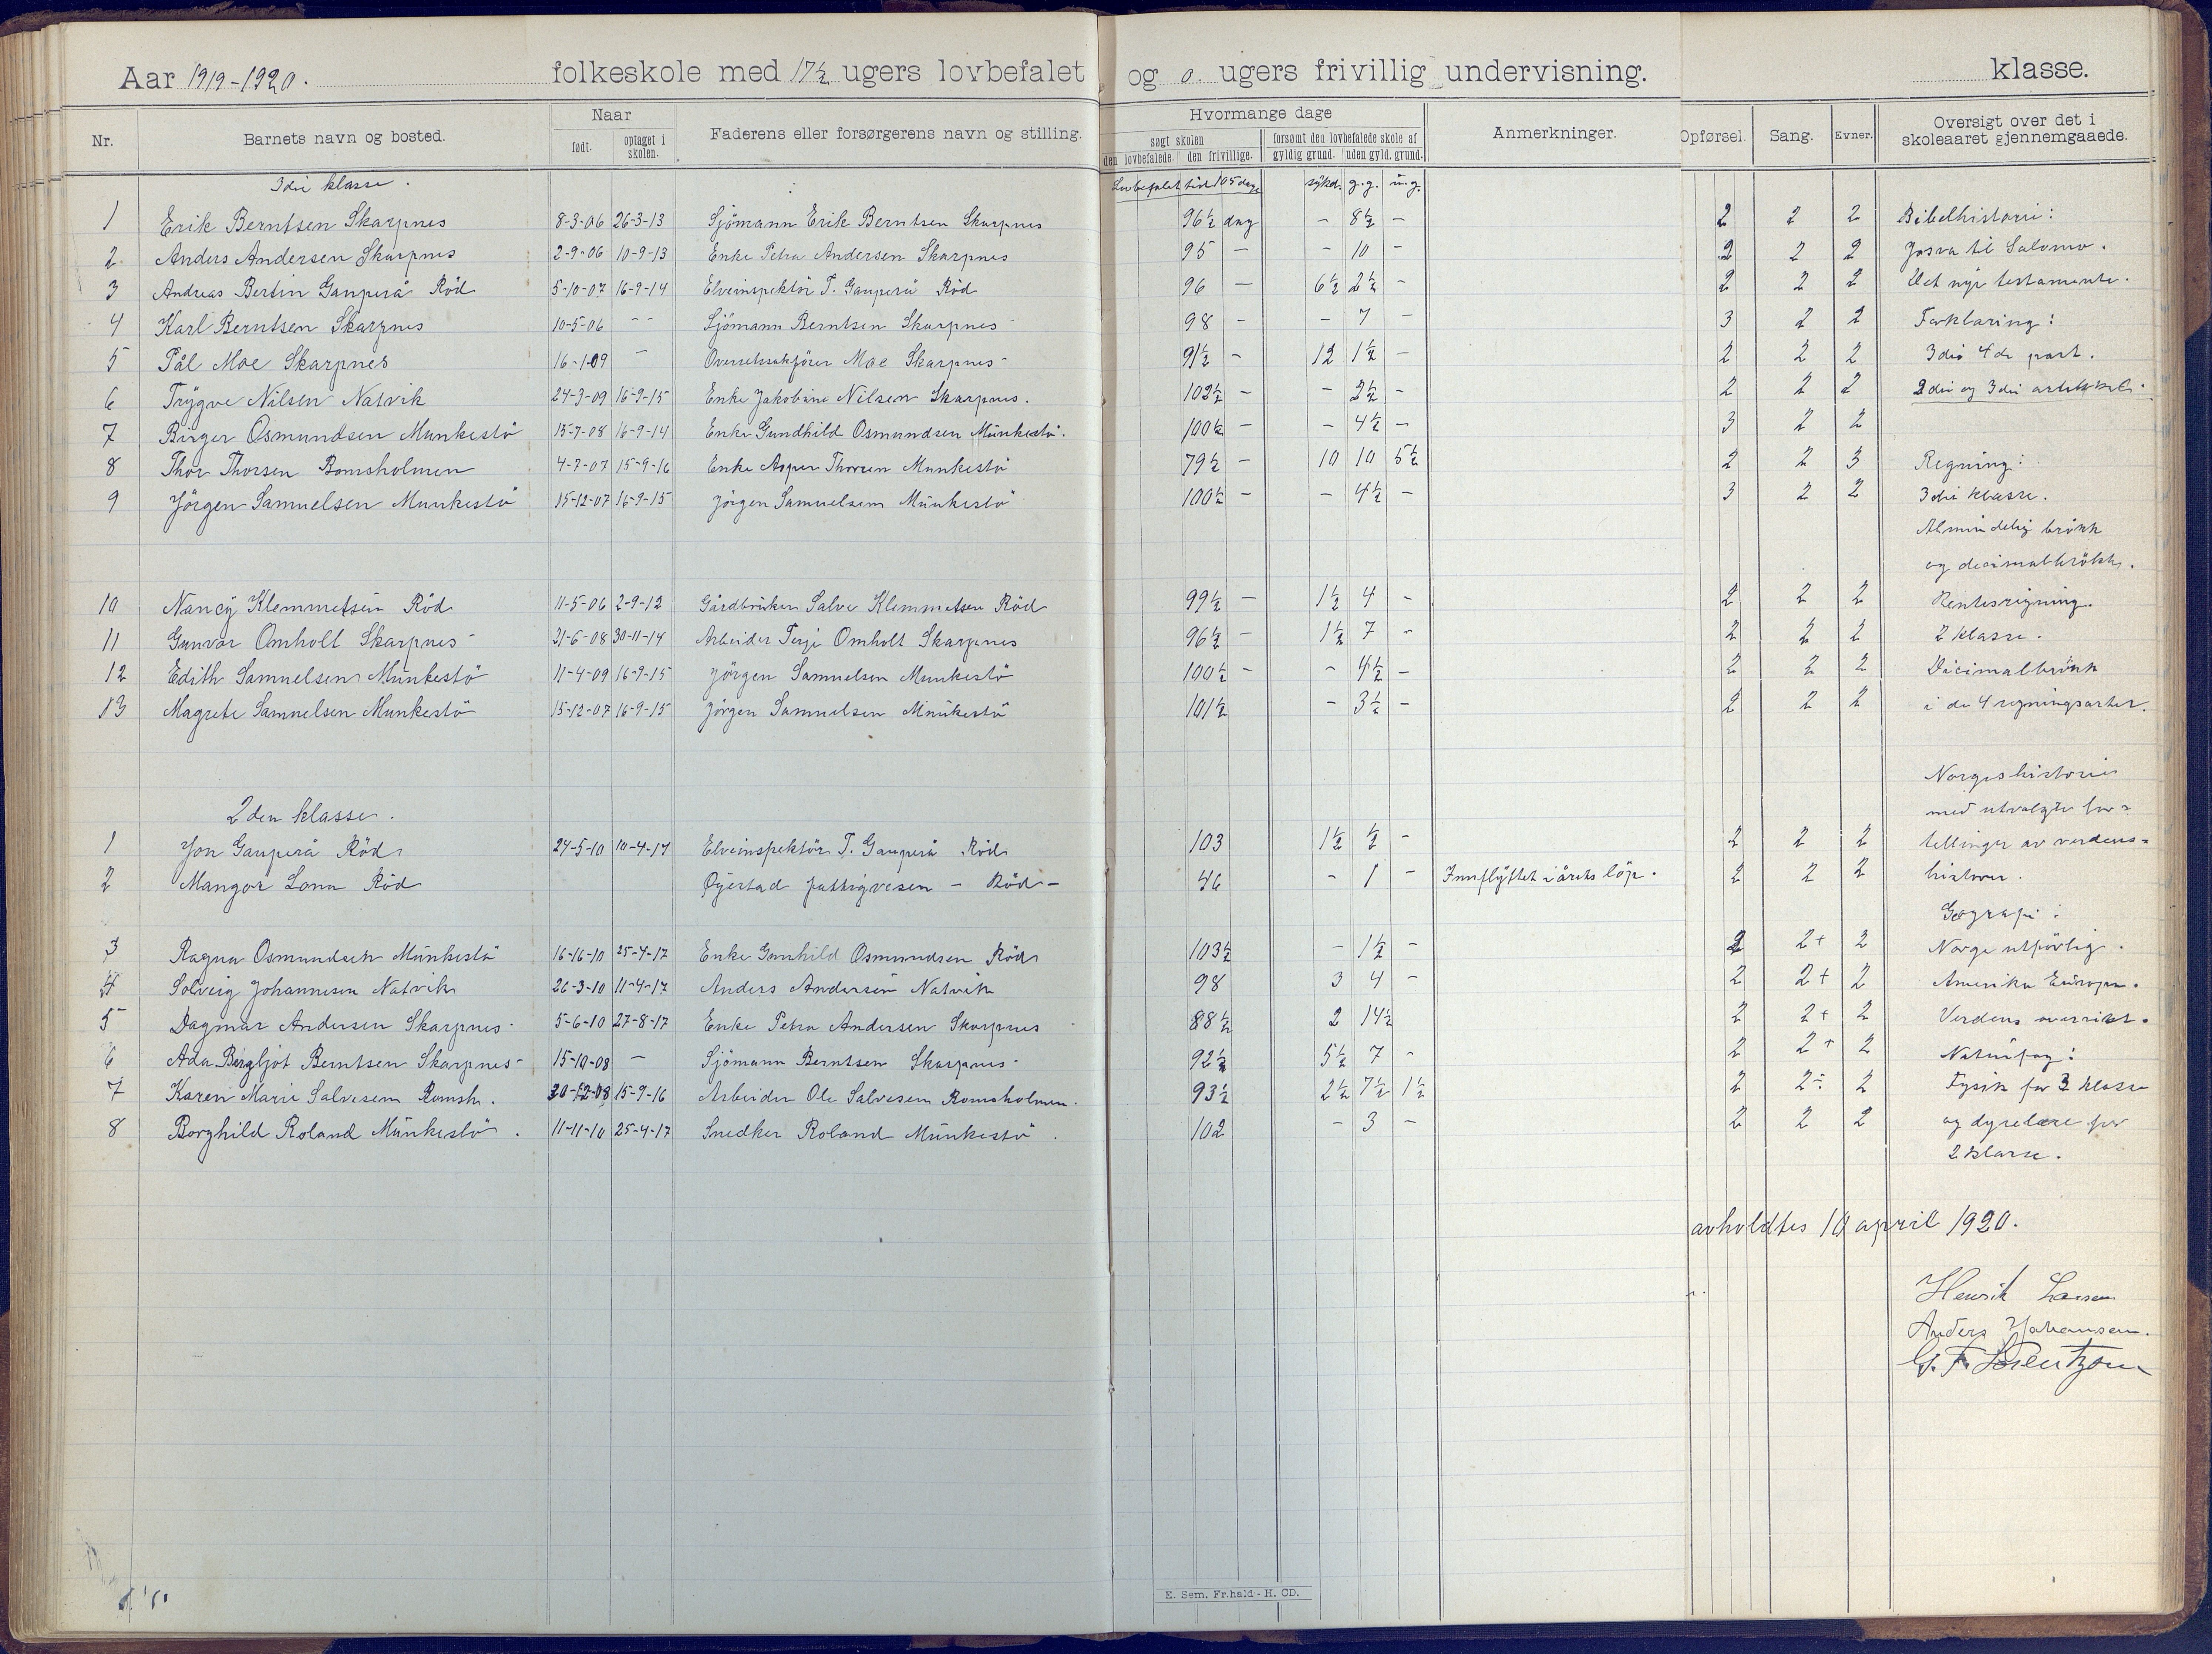 Aar 1919-1920. folkeskole med 17½ ugers lovbefalet og 0. ugers frivillig undervisning. klasse.
Nr. Barnets navn og bosted. Naar født. optaget i skolen. Faderens eller forsørgerens navn og stilling. Hvormange dage søgt skolen den lovbefalede. den frivillige. forsømt den lovbefalede skole af gyldig grund. uden gyld. grund. Anmerkninger. Opførsel. Sang. Evner. Oversigt over det i skoleaaret gjennemgaaede.
3die klasse. Lovbefalet tid 105 dage sykd. g.g. u.g.
1 Erik Berntsen Skarpnes 8-3-06 26-3-13 Sjömann Erik Berntsen Skarpnes 96½ dag - 8½ - 2 2 2 Bibelhistorie:
2 Anders Andersen Skarpnes 2-9-06 10-9-13 Enke Petra Andersen Skarpnes 95 - - 10 - 2 2 2 Josva til Salomo.
3 Andreas Bertin Gauperå Röd 5-10-07 16-9-14 Elveinspektör T. Gauperå Röd 96 - 6½ 2½ - 2 2 2 Det nye testamente.
4 Karl Berntsen Skarpnes 10-5-06 - - Sjömann Berntsen Skarpnes 98 - - 7 - 3 2 2 Forklaring:
5 Pål Moe Skarpnes 16-1-09 - Overretssakförer Moe Skarpnes 91½ - 12 1½ - 2 2 2 3die 4de part.
6 Trygve Nilsen Natvik 24-3-09 16-9-15 Enke Jakobine Nilsen Skarpnes. 102½ - - 2½ - 2 2 2 2den og 3die artikkel.
7 Birger Osmundsen Munkestö 15-7-08 16-9-14 Enke Gundhild Osmundsen Munkestö. 100½ - - 4½ - 3 2 2
8 Thor Thorsen Romsholmen 4-7-07 15-9-16 Enke Thorsen Munkestö 79½ - 10 10 5½ 2 2 3 Regning:
9 Jörgen Samuelsen Munkestö 15-12-07 16-9-15 Jörgen Samuelsen Munkestö 100½ - - 4½ - 3 2 2 3die klasse.
Almindelig brökk
og decimalbrökk.
10 Nancy Klemmetsen Röd 11-5-06 2-9-12 Gårdbruker Salve Klemmetsen Röd 99½ - 1½ 4 - 2 2 2 Rentesregning.
11 Gunvor Omholt Skarpnes 21-6-08 30-11-14 Arbeider Terje Omholt Skarpnes 96½ - 1½ 7 - 2 2 2 2 klasse.
12 Edith Samuelsen Munkestö 11-4-09 16-9-15 Jörgen Samuelsen Munkestö 100½ - - 4½ - 2 2 2 Decimalbrökk
13 Magrete Samuelsen Munkestö 15-12-07 16-9-15 Jörgen Samuelsen Munkestö 101½ - 3½ - 2 2 2 i de 4 regningsarter.
Norgeshistorie
2den klasse. med utvalgte for-
1 Jon Gauperå Röd 24-5-10 10-4-17 Elveinspektör T. Gauperå Röd 103 1½ ½ - 2 2 2 tellinger av verdens-
2 Mangor Lona Röd Öyestad fattigvesen - Röd - 46 - 1 - Innflyttet i årets löp. 2 2 2 historie.
Geografi:
3 Ragna Osmundsen Munkestö 16-16-10 25-4-17 Enke Gunhild Osmundsen Röd 103½ - 1½ - 2 2+ 2 Norge utförlig.
4 Solveig Johannesen Natvik 26-3-10 11-4-17 Anders Andersen Natvik 98 3 4 - 2 2+ 2 Amerika Europa.
5 Dagmar Andersen Skarpnes 5-6-10 27-8-17 Enke Petra Andersen Skarpnes 88½ 2 14½ 2 2+ 2 Verdens oversikt.
6 Ada Bergljot Berntsen Skarpnes 15-10-08 - Sjömann Berntsen Skarpnes 92½ 5½ 7 - 2 2+ 2 Naturfag:
7 Karen Marie Salvesen Romsh. 30-12-08 15-9-16 Arbeider Ole Salvesen Romsholmen. 93½ 2½ 7½ 1½ 2 2÷ 2 Fysik for 3 klasse
8 Borghild Roland Munkestö. 11-11-10 25-4-17 Snedker Roland Munkestö. 102 - 3 - 2 2 2 og dyrelære for
2 klasse.
avholdtes 10 april 1920.
Henrik Larsen
Anders Johansen.
G. F. Lorentzen
E. Sem. Fr.hald - H. CD.